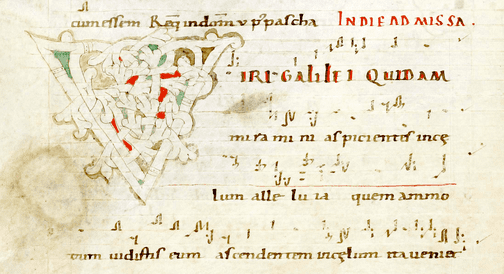 cum essem Req̄ in dom̄ v p̄ pascha IN DIE AD MISSA.
VIRI GALILEI QUIDAM
miramini aspicientes incę
lum alleluia quemammo
dum uidistis eum ascendentem incęlum ita ueniet